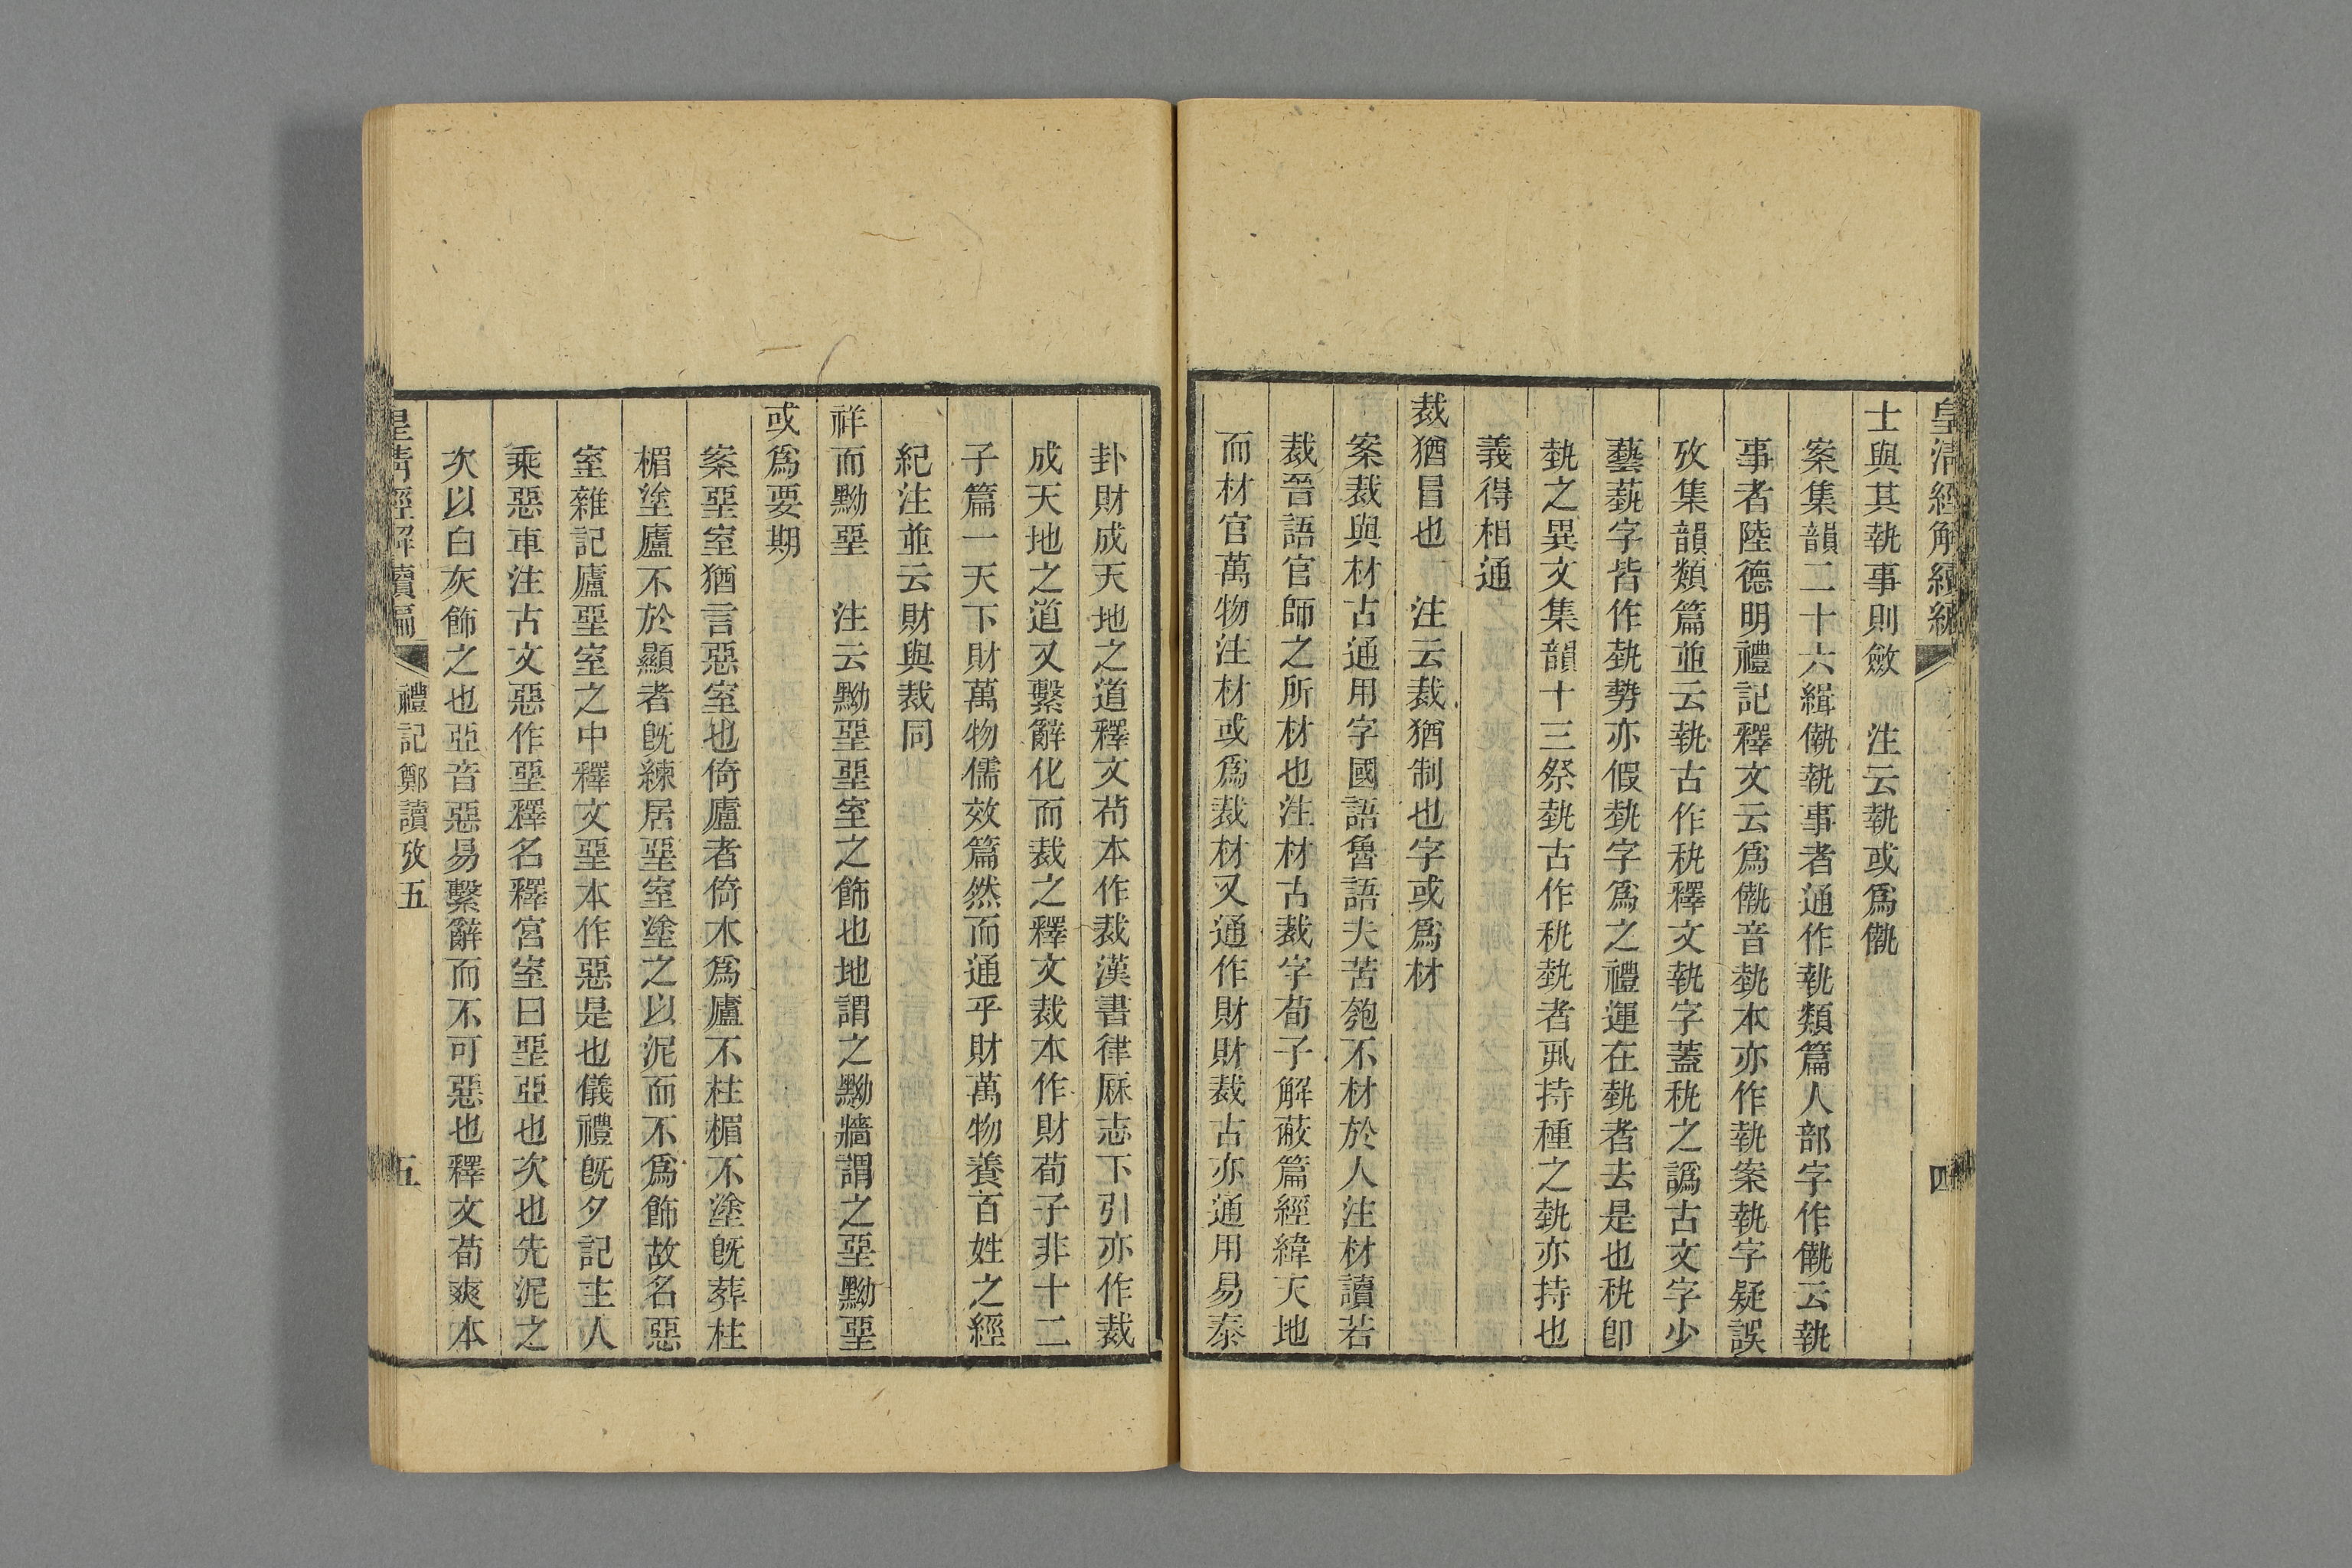 皇清經解續編
四
士與其執事則斂　注云執或爲僌
案集韻二十六緝執事者通作執類篇人部字作云執
事者陸德明禮記釋文云爲音埶本亦作執案執字疑誤
攷集韻類篇並云執古作秇釋文執字蓋秇之譌古文字少
藝蓺字皆作埶勢亦假埶字爲之禮運在埶者去是也秇卽
埶之異文集韻十三祭埶古作秇埶者丮持種之埶亦持也
義得相通
裁猶冒也　注云裁猶制也字或爲材
案裁與材古通用字國語魯語夫苦匏不材於人注材讀若
裁晉語官師之所材也注材古裁字荀子解蔽篇經緯天地
而材官萬物注材或爲裁材又通作財財裁古亦通用易泰
卦財成天地之道釋文荀本作裁漢書律厤志下引亦作裁
成天地之道又繫辭化而裁之釋文裁本作財荀子非十二
子篇一天下財萬物儒效篇然而通乎財萬物養百姓之經
紀注並云財與裁同
祥而黝堊　注云黝堊堊室之飾也地謂之黝牆謂之堊黝堊
或爲要期
案堊室猶言惡室也倚廬者倚木爲廬不柱楣不塗旣葬柱
楣塗廬不於顯者旣練居堊室塗之以泥而不爲飾故名惡
室雜記廬堊室之中釋文堊本作惡是也儀禮旣夕記主人
乘惡車注古文惡作堊釋名釋宮室曰堊亞也次也先泥之
次以白灰飾之也亞音惡易繫辭而不可惡也釋文荀爽本
皇清經解續編
禮記鄭讀攷五
五